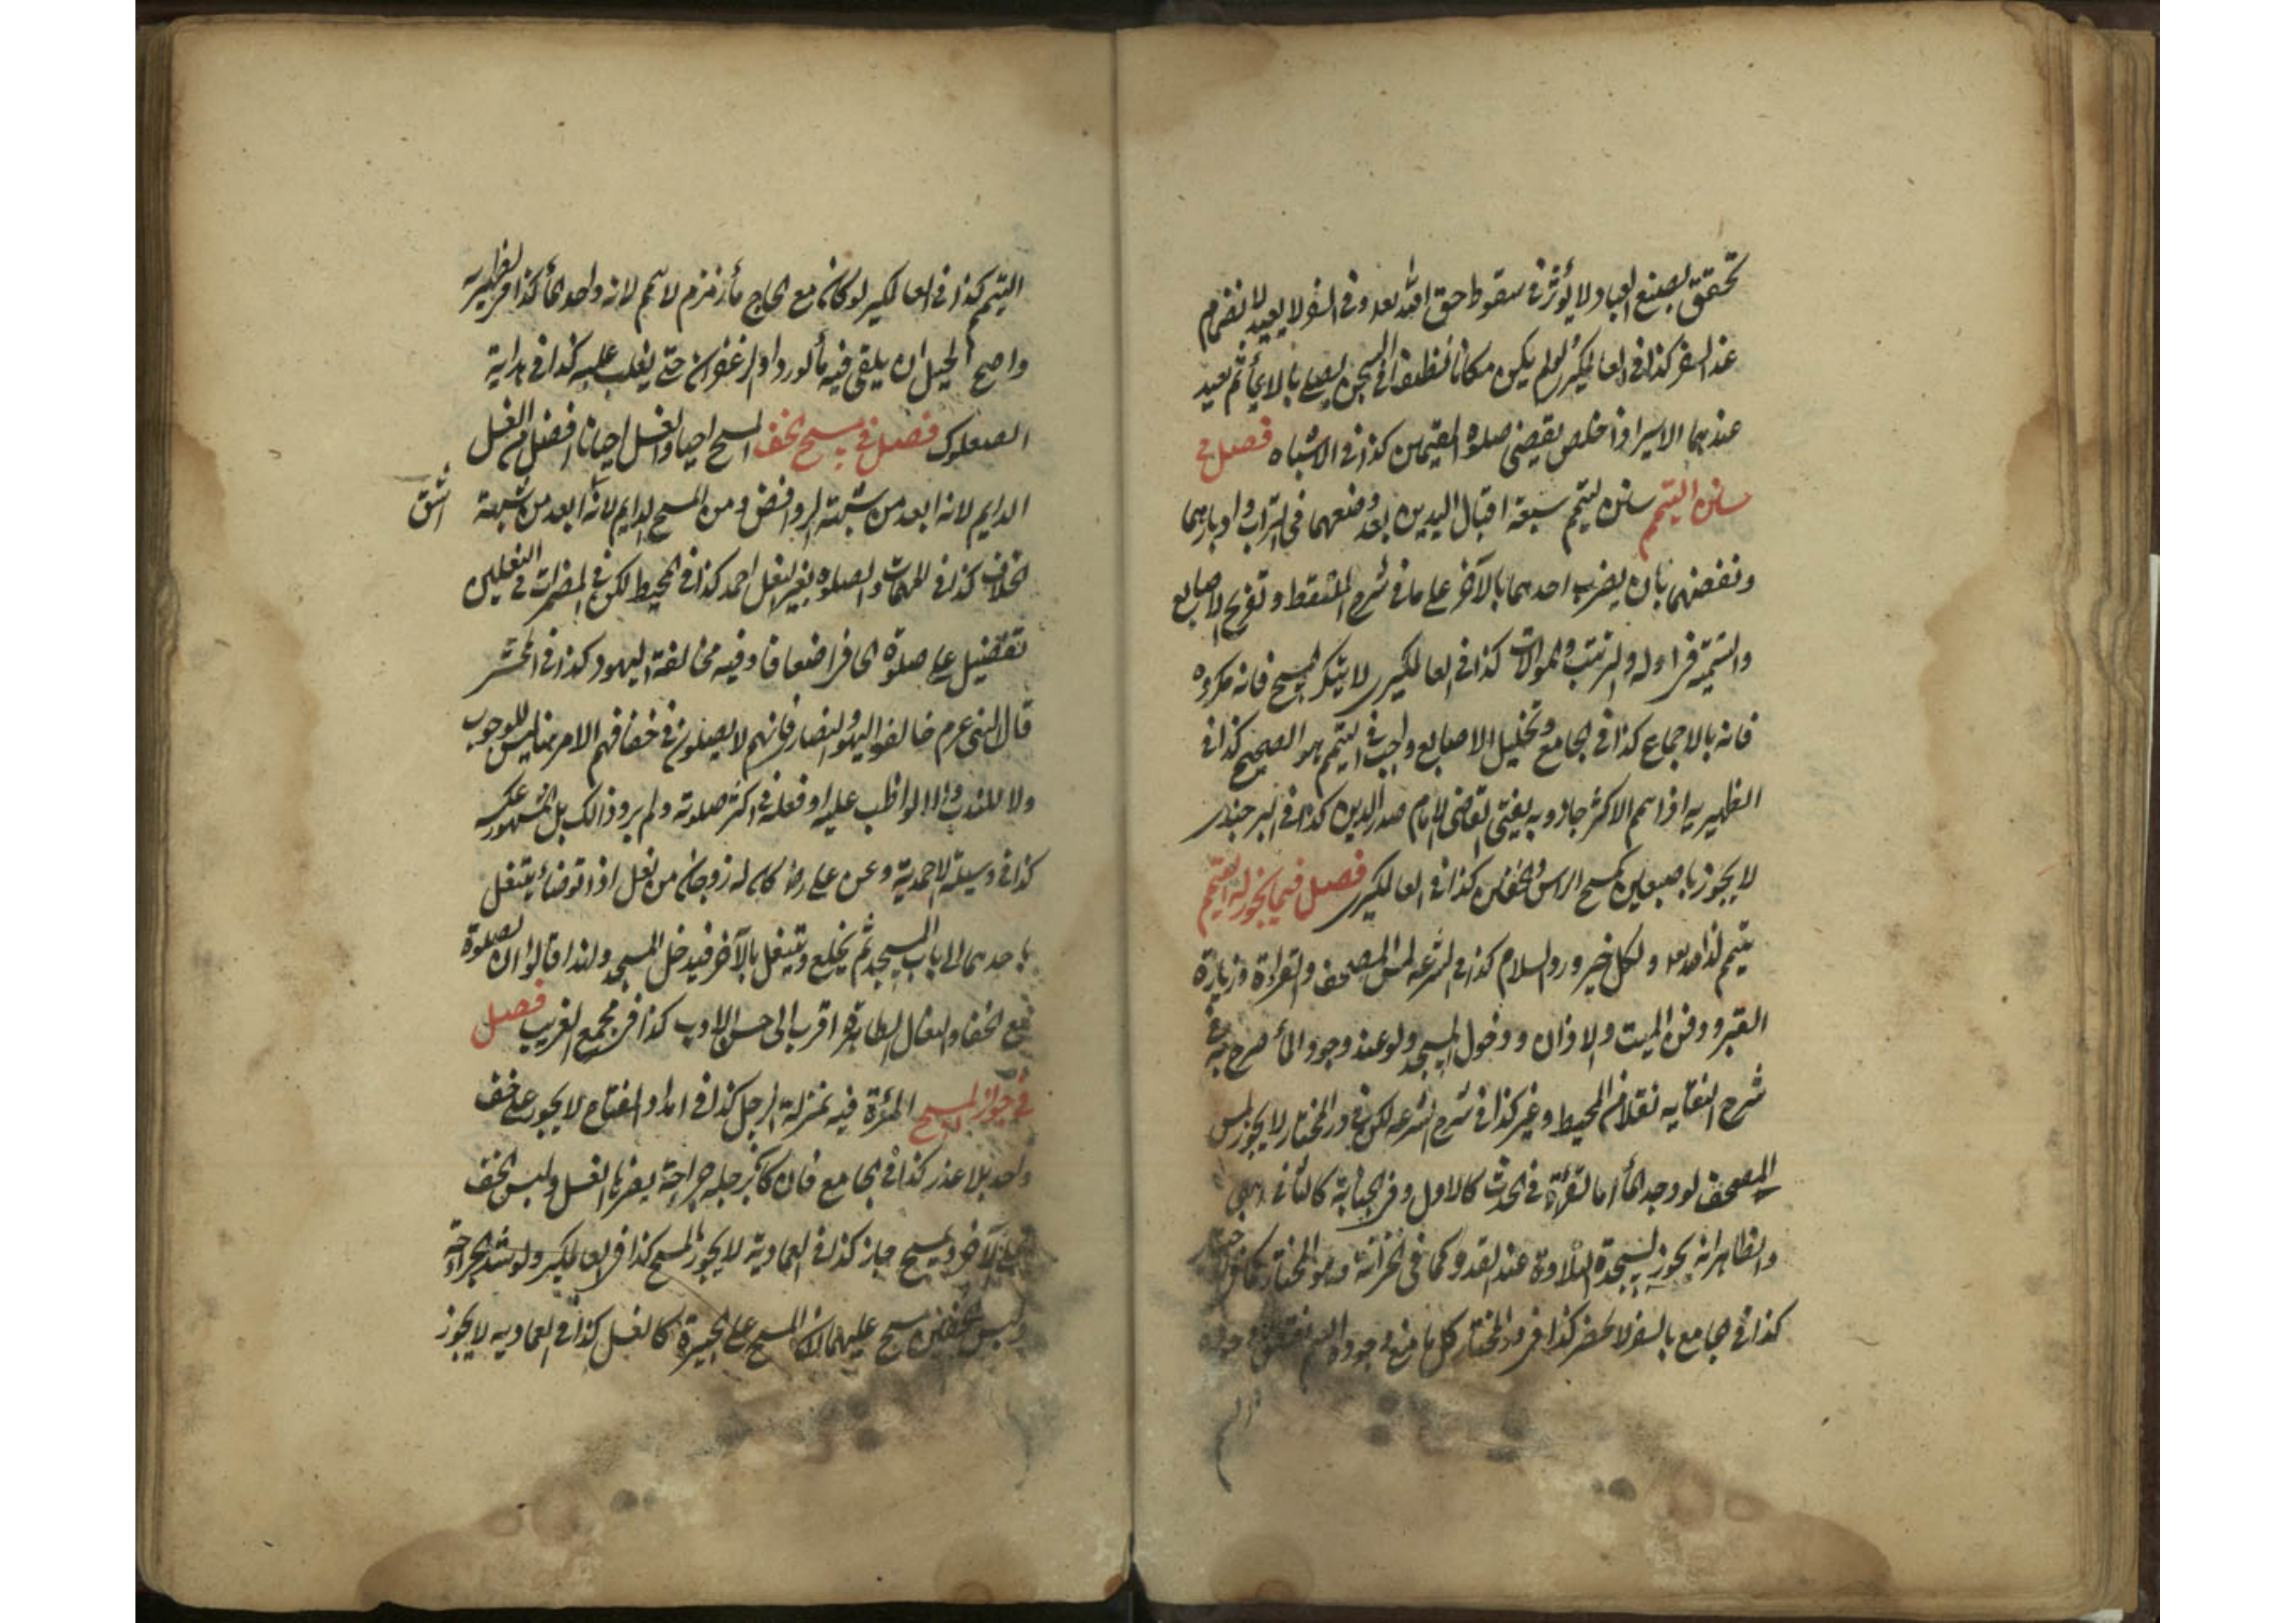 تحقق بصنع العباد ولا يؤثر في سقوط حق الله تعد وفي السفر لا يعيد لانضم
عند السفر كذا في العالمكير لو لم يكن مكانا نظيفا في السجن يصلي بالايمأ ثم يعيد
عندهما الاسير اذا خلص يقضي صلوة المقيمين كذا في الاشباه فصل في
سنن التيمم سنن تيمم سبعة اقبال اليدين بعد وضعهما في التراب وادبارهما
ونفضهما بان يضرب احدهما بالآخر على ما في شرح الملتقط وتفريج الاصابع
والتسمية في اوله والترتيب والموالات كذا في العالمكيري لا يتكرر المسح فانه مكروه
فانه بالاجماع كذا في الجامع وتخليل الاصابع واجب في التيمم هو الصحيح كذا في
الظهيريه اذا سم الاكثر جاز وبه يفتي القاضي الامام صدر الدين كذا في البرجندي
لا يجوز باصبعين كمسح الراس والخفين كذا في العالمكيري فصل فيما يجوز له التيمم
يتيمم لذا ولكل خير ورد السلام كذا في الشرعه لمس المصحف والقراءة وزيارة
القبر ودفن الميت والاذان ودخول المسجد ولو عند وجود المأ صرح به في
شرح النقايه نقلا من المحيط وغيره كذا في شرح الشرعه لكن في در المختار لا يجوز لمس
المصحف لو وجد المأ اما لقرأة في الحدث كالاول وفي الجنابة كالثاني
والظاهر انه يجوز لسجدة التلاوة عند الفقد وكما في الخزانة وهو المختار
كذا في جامع بالسفر لا حضر كذا في در المختار كل ما منع وجوده التيمم نقض وجوده
التيمم كذا في العالمكير لو كان مع الحاج مأ زمزم لا يتم لانه واجد المأ كذا في الظهيريه
واصح الحيل ان يلقي فيه مأ لورد او الزعفران حتى يغلب عليه كذا في هداية
الصعلوك فصل في مسح الخف المسح احيانا والغسل احيانا افضل من الغسل
الدايم لانه ابعد من شبهة الروافض ومن المسح الدايم لانه ابعد من شبهة
الخلاف كذا في المهمات والصلوة بغير النعل احمد كذا في المحيط لكن في المضمرات في النعلين
تفضيل على صلوة الحافر اضعافا وفيه مخالفة اليهود كذا في المحشر
قال النبي عرم خالفوا اليهود والنصار فانهم لا يصلون في خفافهم الامر هنا ليس للوجوب
ولا للندب والا لواظب عليه او فعله في اكثر صلوته ولم يرو ذالك بل المشهور عكسه
كذا في وسيلة الاحمدية وعن علي رض كان له زوجان من نعل اذا توضأ يتنعل
باحدهما الى باب المسجد ثم يخلع ويتنعل بالآخر فيدخل المسجد ولهذا قالوا ان الصلوة
مع الخفا والنعال الطاهرة اقرب الى حسن الادب كذا في مجمع الغريب فصل
في جواز المسح المرأة فيه بمنزلة الرجل كذا في امداد الفتاح لا يجوز على خف
واحد بلا عذر كذا في الجامع فان كان برجله جراحة يضرها الغسل ولبس الخف
على الآخر ويمسح جاز كذا في العمادية لا يجوز المسح كذا في العالمكير ولو شد الجراحة
ولبس الخفين مسح عليهما لان المسح على الجبيرة كالغسل كذا في العماديه لا يجوز